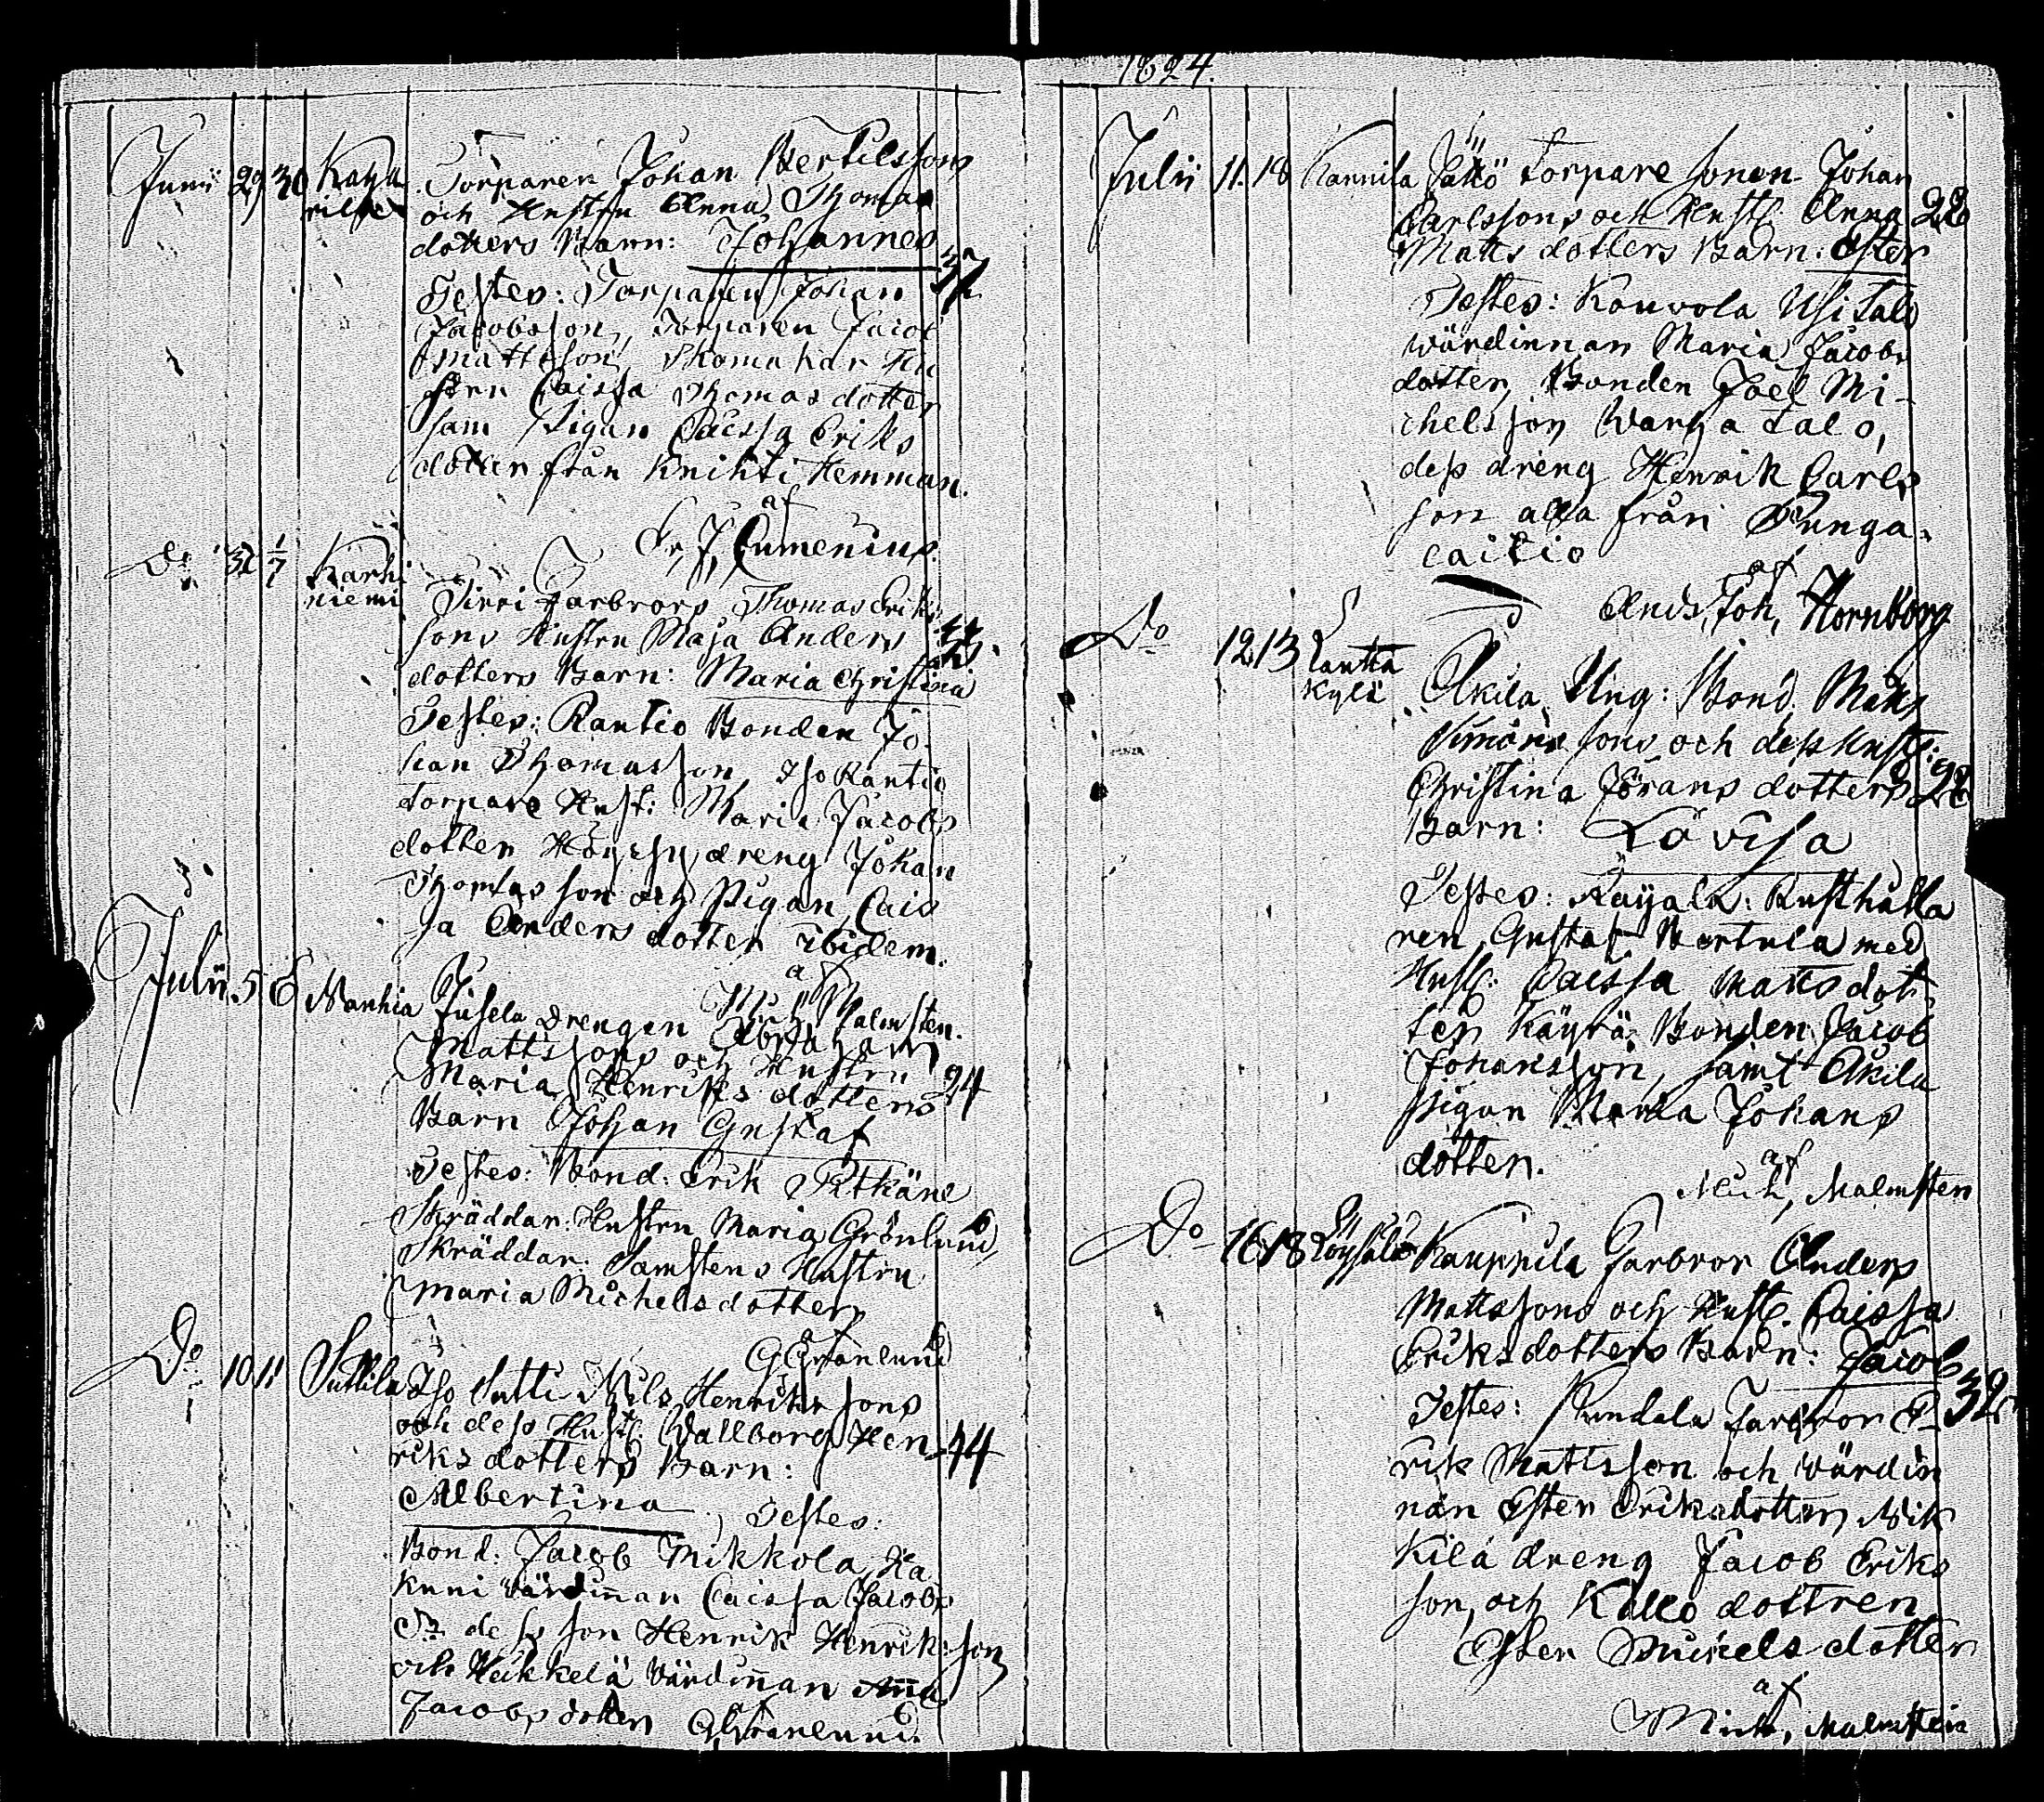 1824.
Junii 29 30 Torparen Johan Bertilssons
och Hustru Anna Thomas
dotters Barn: Johannes
37
Testes: Torparen Johan
Jacobsson, Torparen Jacob
Mattsson Skomakar Hu
strun Caissa Thomas dotter
samt Pigan Caissa Eriks
dotter från Knihti Hemman.
af
J. Cumenius.
Do 1/7 Karhi
niemi Farbrors Thomas Erik
sons Hustru Maja Anders
dotters Barn: Maria Christina
Testes: Rantio Bonden Jo
han Thomasson, Iso Rantio
torpare Hust: Maria Jacobs
dotter dreng Johan
Thomasson och Pigan Cais
sa Anders dotter ibidem.
af
Malmsten.
Julii 5 6 Mauhia Jusela Drengen Abraham
Mattssons och Hustru
Maria Henriks dotters 24
Barn Johan Gustaf
Testes: Bond: Erik Pitkäne
Skräddar: Hustru Maria Grönlund,
Skräddar Samstens Hustru
Maria Michelsdotter
af
G Grönlund
Do 10 11 Suttila Iso Sutti Nils Henrikssons
och dess Hust: Wallborg Hen 44
riks dotters Barn:
Albertina, Testes:
Bond: Jacob Mikkola, Ha
kuni värdinnan Caissa Jacobs
dess son Henrik Henriksson
och Heikkelä Värdinnan Anna
Jacobs dotter G Grönlund.
Julii 11. 18 Karnila torpare sonen Johan
Carlssons och Hust: Anna 22
Matts dotters Barn: Ester
Testes: Kouvola Usitalo
wärdinnan Maria Jacobs
dotter, Bonden Joel Mi-
chelsson Wanhatalo,
dess dreng Henrik Carls
son alla från Punga-
laitio
af
Ands, Joh, Hornborg
Do 12 13 Rautta
kylä Akila Ung: Bond. Matts
Simons sons och dess Hust:
Christina Jörans dotters 28
Barn: Lovisa
Testes: Käyälä Rusthålla
ren Gustaf Bertula med
Hust: Caissa Matts dot
ter Käyrä Bonden Jacob
Johansson, samt Akila
pigan Maria Johans
dotter.
af
Mich, Malmsten
Do 16 18 Kauppila Farbror Anders
Mattssons och Hust. Caissa
Eriksdotters Barn: Jacob
32
Testes: Pundala Farbror E
rik Mattsson och Värdin
nan Ester Eriksdotter, Mik
kilä dreng Jacob Eriks
son, och Kallo dottren
Ester Michels dotter
af
Mich, Malmsten